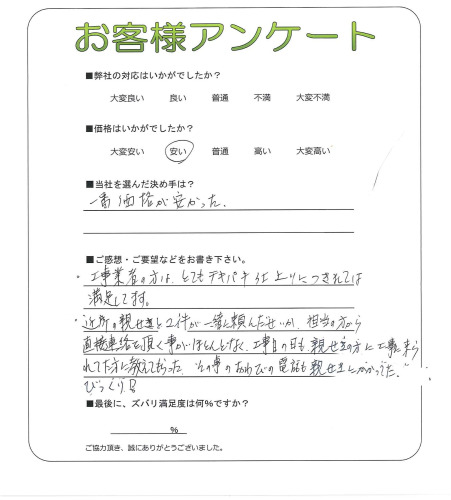 お客様アンケート
■弊社の対応はいかがでしたか？
大変良い 良い 普通 不満 大変不満
■価格はいかがでしたか？
大変安い 安い 普通 高い 大変高い
■当社を選んだ決め手は？
一番価格が安かった。
■ご感想・ご要望などをお書き下さい。
・工事業者の方は、とてもテキパキ仕上りにつきましては
満足してます。
・近所の親せきと2件が一緒に頼んだせいか、担当の方から
直接連絡を頂く事がほとんどなく、工事日の日も親せきの方に工事に来ら
れてた方に教えてもらった。その事のおわびの電話も親せきにかかってた。
びっくり!!
■最後に、ズバリ満足度は何%ですか？
%
ご協力頂き、誠にありがとうございました。